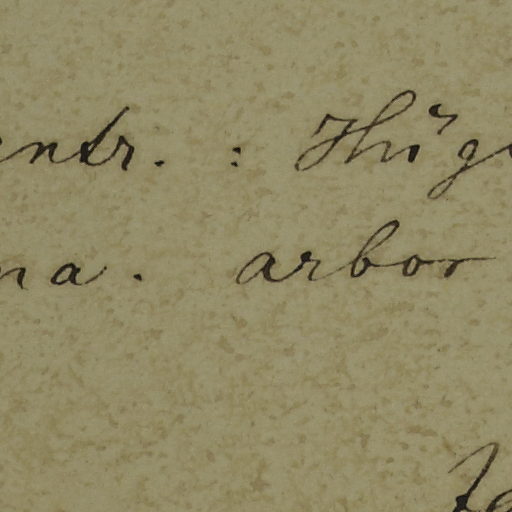 entr. : Hüg
na. arbor